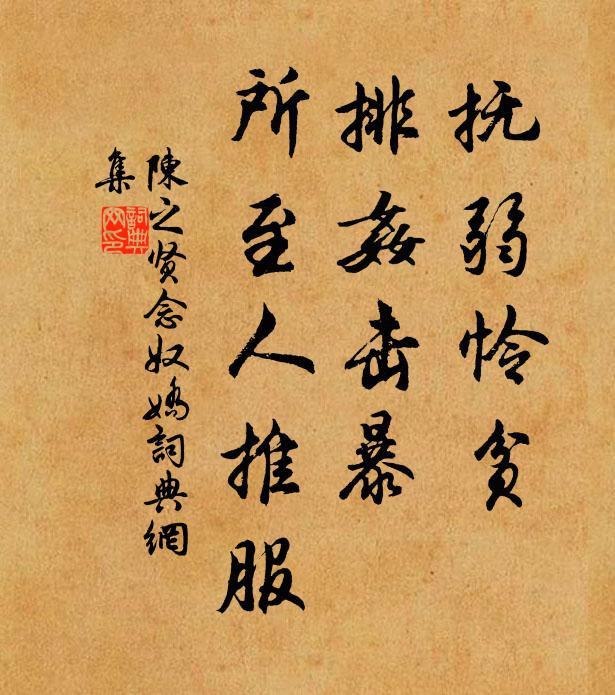 抚弱怜贫
排姦击暴
所至人推服
陳之贤念奴嬌詞典網
集
詞典
网印